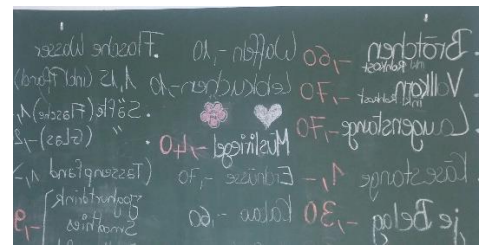 Brötchen -,60
mit Rohkost
Vollkorn -,70
mit Rohkost
Laugenstange -,70
Käsestange 1,-
je Belag -,30
Waffeln -,10
Lebkuchen -,10
Müsliriegel -,40
Erdnüsse -,70
Kakao -,60
. Flasche Wasser
1,15 (inkl. Pfand)
. Säfte (Flasche) 1,
" (Glas) -,2
(Tassenpfand 1,-)
Joghurtdrink
Smoothies